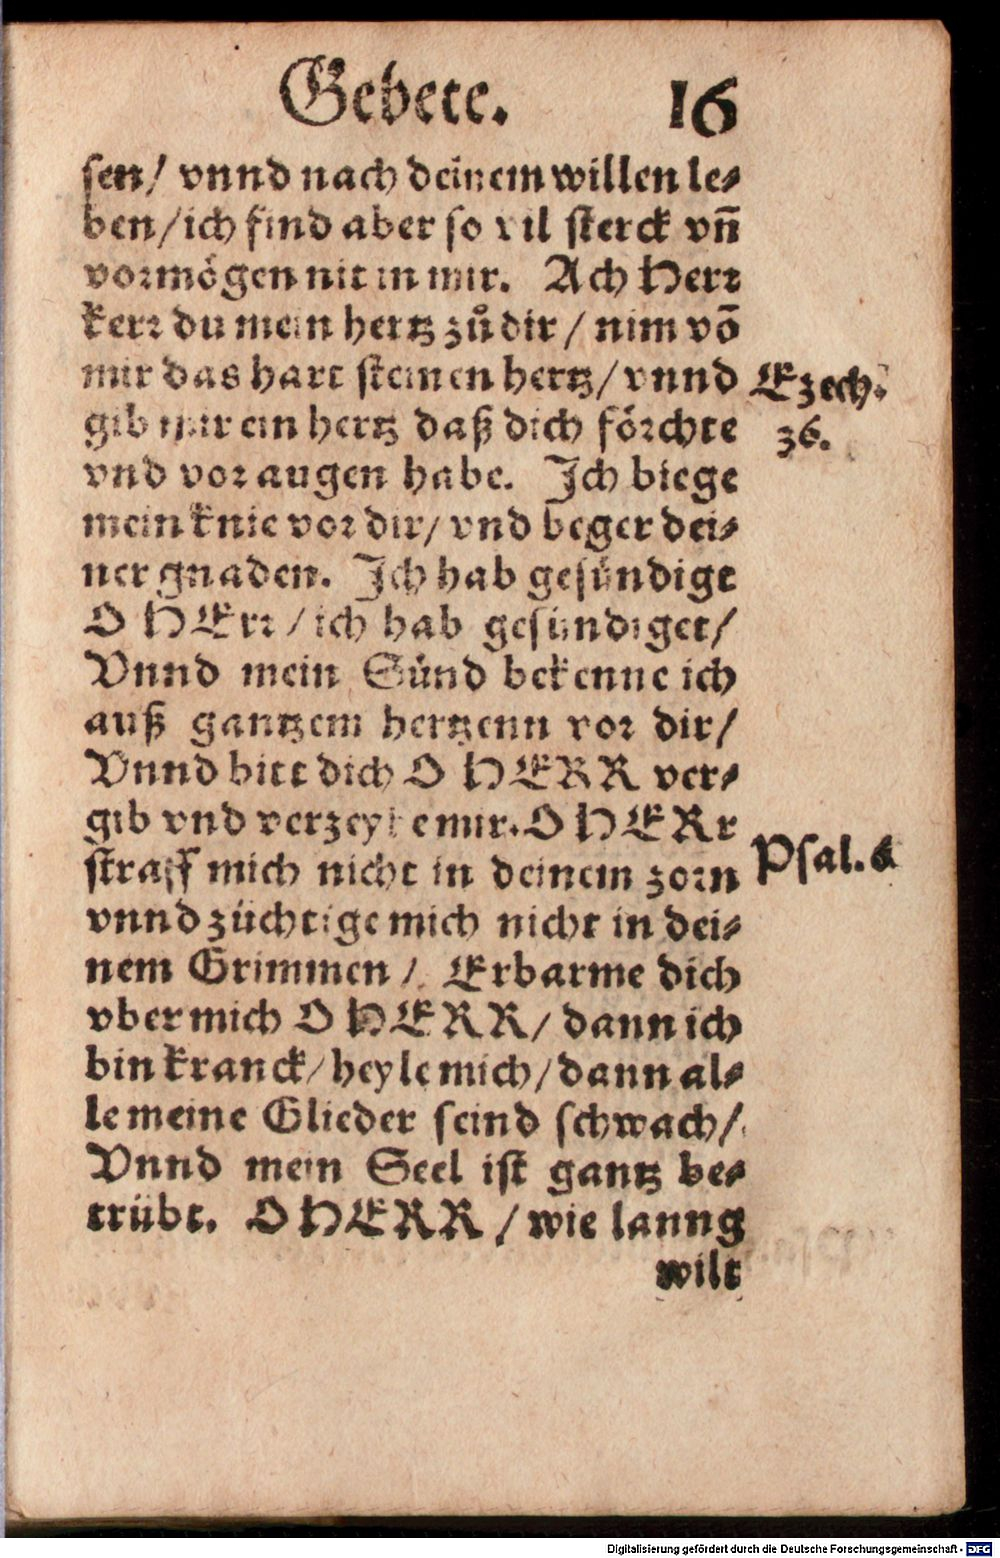 Gebete. 16
sen/ vnnd nach deinem willen le⸗
ben/ ich find aber so vil sterck vn̄
vormögen nit in mir. Ach Herr
kerr du mein hertz zů dir/ nim vō
mir das hart steinen hertz/ vnnd
Ezech.
gib mir ein hertz daß dich förchte
36.
vnd vor augen habe. Ich biege
mein knie vor dir/ vnd beger dei⸗
ner gnaden. Ich hab gesündigt
O HErr/ ich hab gesündiget/
Vnnd mein Sünd bekenne ich
auß gantzem hertzenn vor dir/
Vnnd bitt dich O HERR ver⸗
gib vnd verzeyhe mir. O HERr
straff mich nicht in deinem zorn
Psal. 6
vnnd züchtige mich nicht in dei⸗
nem Grimmen/ Erbarme dich
vber mich O HERR/ dann ich
bin kranck/ heyle mich/ dann al⸗
le meine Glieder seind schwach/
Vnnd mein Seel ist gantz be⸗
trübt. O HERR/ wie lanng
wilt
Digitalisierung gefördert durch die Deutsche Forschungsgemeinschaft - DFG